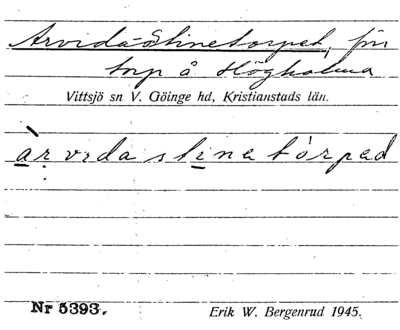 Arvida-Stinetorpet, förr
torp å Högholma
Vittsjö sn V. Göinge hd, Kristianstads län.
àrvida stinetòrpad
Nr 5393. Erik W. Bergenrud 1945.